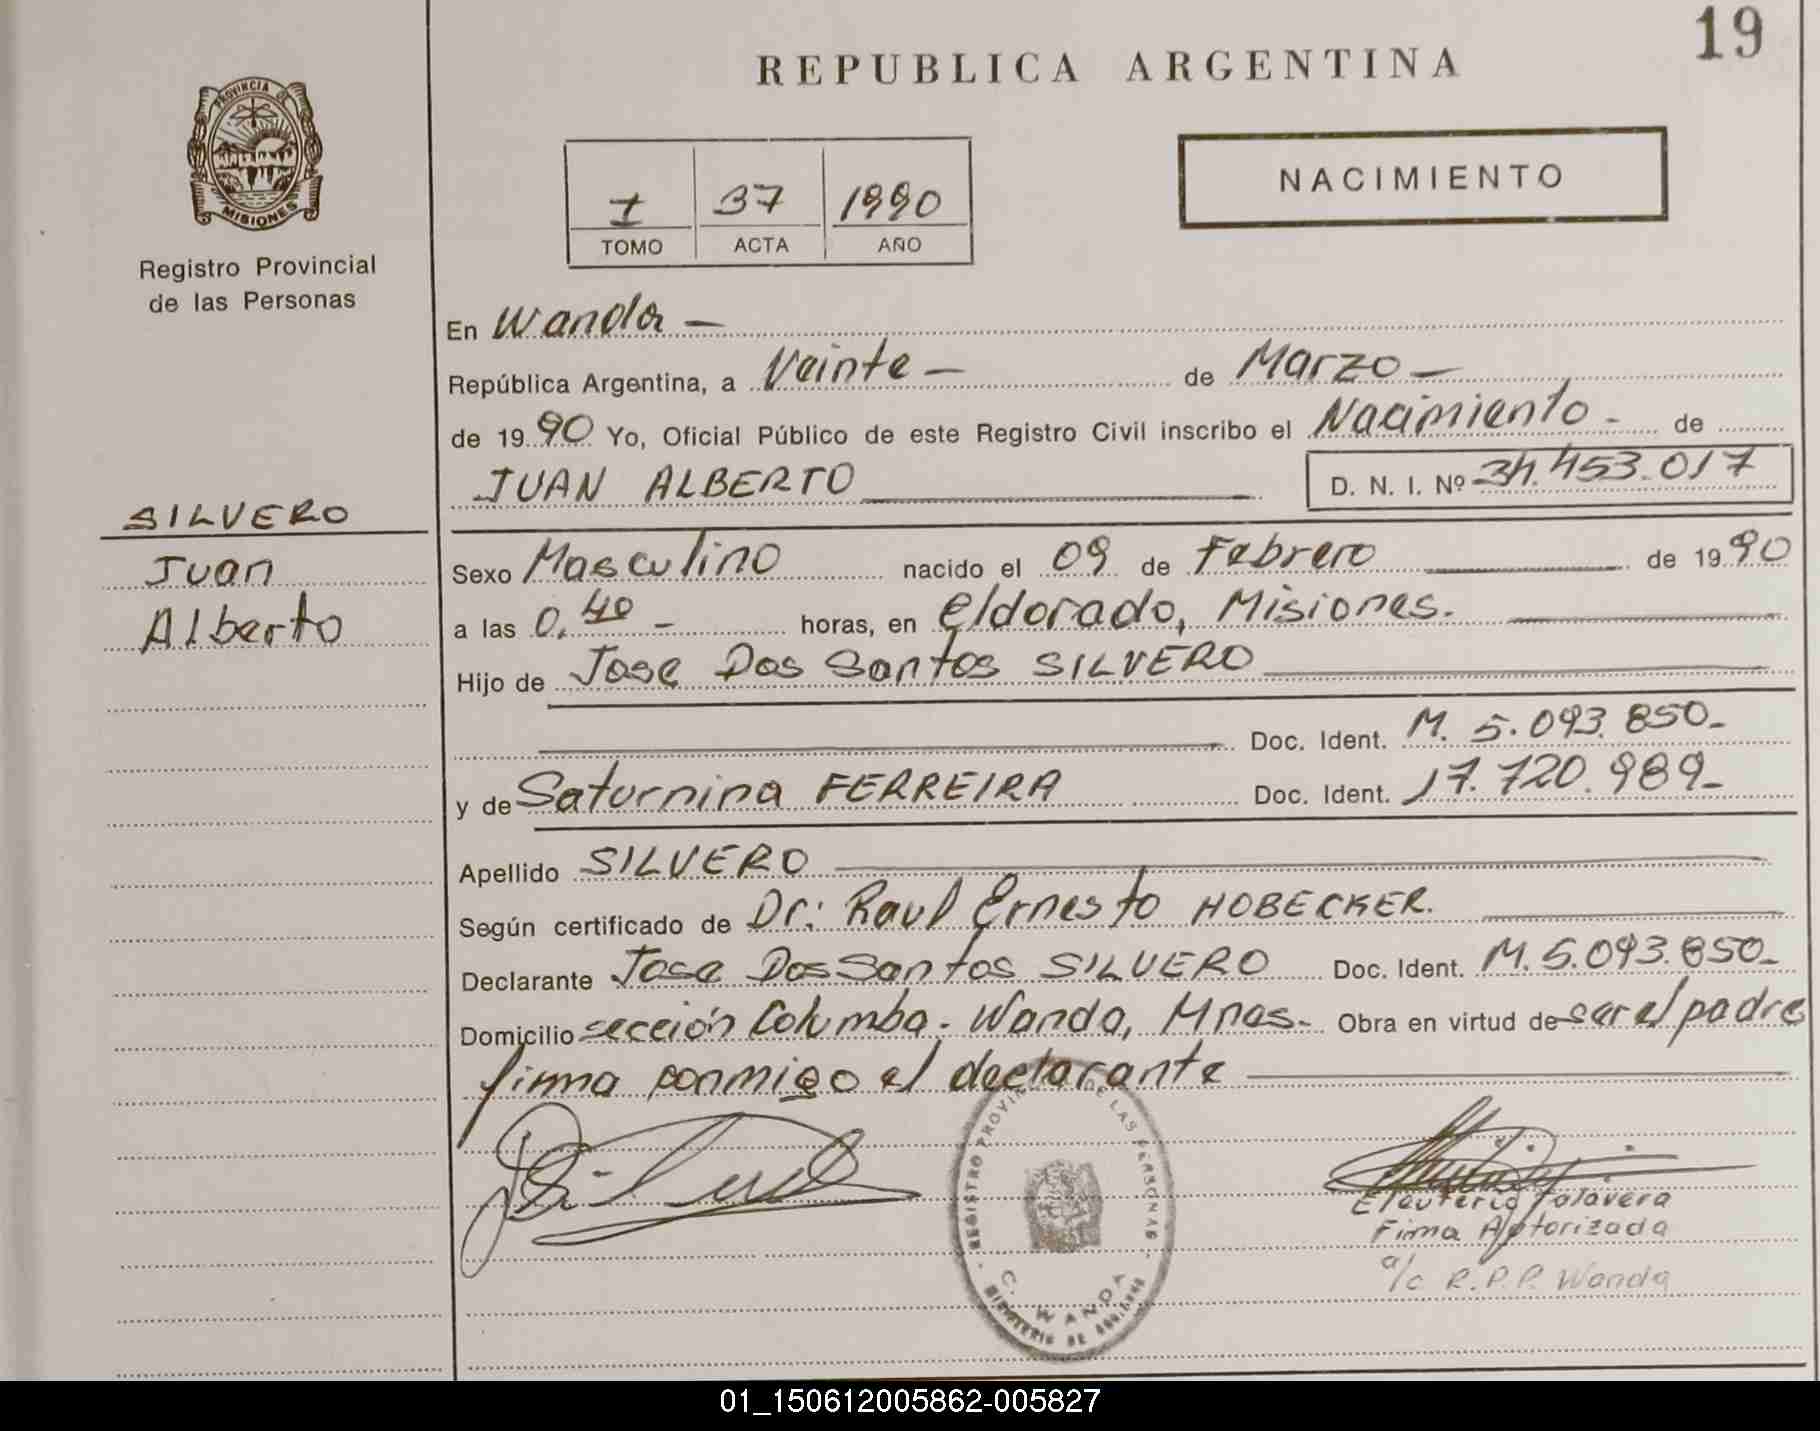 19
REPUBLICA ARGENTINA
PROVINCIA DE
MISIONES
Registro Provincial
de las Personas
I 37 1990
TOMO ACTA AÑO
NACIMIENTO
En Wanda -
República Argentina, a Veinte - de Marzo -
de 1990 Yo, Oficial Público de este Registro Civil inscribo el Nacimiento - de
JUAN ALBERTO D. N. I. Nº 34.453.017
SILVERO
Juan
Alberto
Sexo Masculino nacido el 09 de Febrero de 1990
a las 0,40 - horas, en Eldorado, Misiones.
Hijo de Jose Dos Santos SILVERO
Doc. Ident. M. 5.093.850-
y de Saturnina FERREIRA Doc. Ident. 17.720.989-
Apellido SILVERO
Según certificado de Dr: Raul Ernesto HOBECKER.
Declarante Jose Dos Santos SILVERO Doc. Ident. M. 5.093.850-
Domicilio sección Columba. Wanda, Mnes- Obra en virtud de ser el padre
firma conmigo el declarante
REGISTRO PROVINCIAL DE LAS PERSONAS
C. WANDA
MINISTERIO DE
Eleuterio Talavera
Firma Autorizada
a/c R.P.P. Wanda
01_150612005862-005827